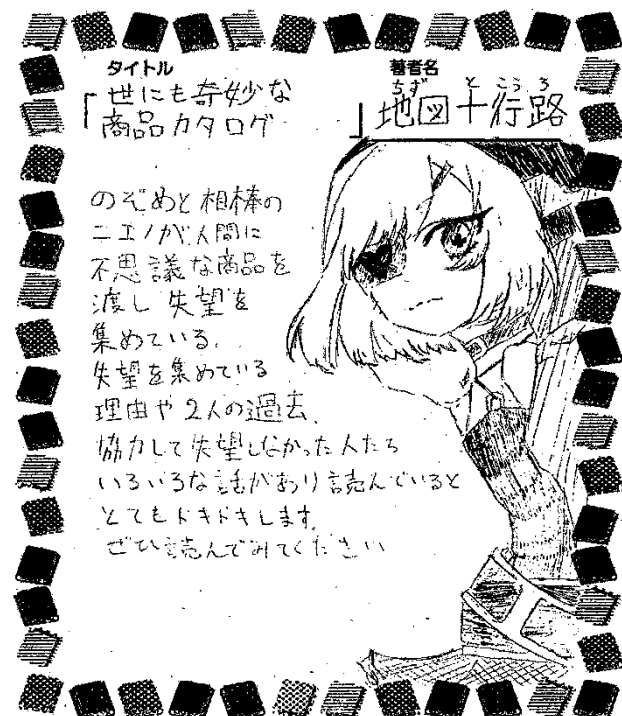 タイトル
「世にも奇妙な
商品カタログ」
著者名
ちず と こうろ
地図十行路
のぞめと相棒の
ニエノが人間に
不思議な商品を
渡し失望を
集めている。
失望を集めている
理由や2人の過去、
協力して失望しなかった人たち
いろいろな話があり読んでいると
とてもドキドキします。
ぜひ読んでみてください